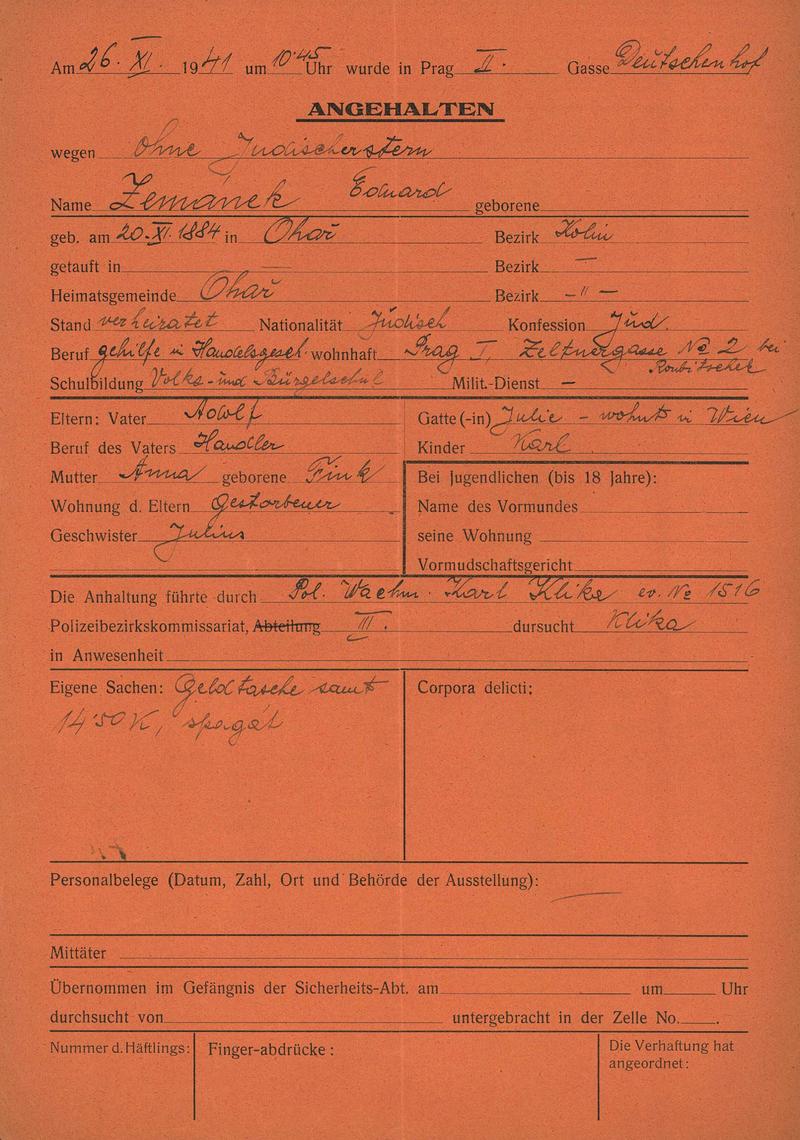 Am 26. XI. 1941 um 10·45 Uhr wurde in Prag II. Gasse Deutschenhof
ANGEHALTEN
wegen Ohne Judischerstern
Name Zemánek Eduard geborene
geb. am 20. XI. 1884 in Ohař Bezirk Kolin
getauft in — Bezirk —
Heimatsgemeinde Ohař Bezirk — " —
Stand verheiratet Nationalität Judisch Konfession Jud.
Beruf gehilfe in Handelsgesch. wohnhaft Prag I, Zeltnergasse № 2 bei
Schulbildung Volks- und Bürgelschul Milit.-Dienst — Roubitschek
Eltern: Vater Adolf Gatte (-in) Julie - wohnt in Wien
Beruf des Vaters Handler Kinder Karl
Mutter Anna geborene Fink Bei Jugendlichen (bis 18 Jahre):
Wohnung d. Eltern Gestorbener Name des Vormundes
Geschwister Julius seine Wohnung
Vormudschaftsgericht
Die Anhaltung führte durch Pol. Wachm. Karl Klika ev. № 1516
Polizeibezirkskommissariat, Abteilung III. dursucht Klika
in Anwesenheit
Eigene Sachen: Geldtasche samt Corpora delicti:
14·50 K, spagat
Personalbelege (Datum, Zahl, Ort und Behörde der Ausstellung):
Mittäter
Übernommen im Gefängnis der Sicherheits-Abt. am um Uhr
durchsucht von untergebracht in der Zelle No. .
Nummer d. Häftlings: Finger-abdrücke : Die Verhaftung hat
angeordnet: